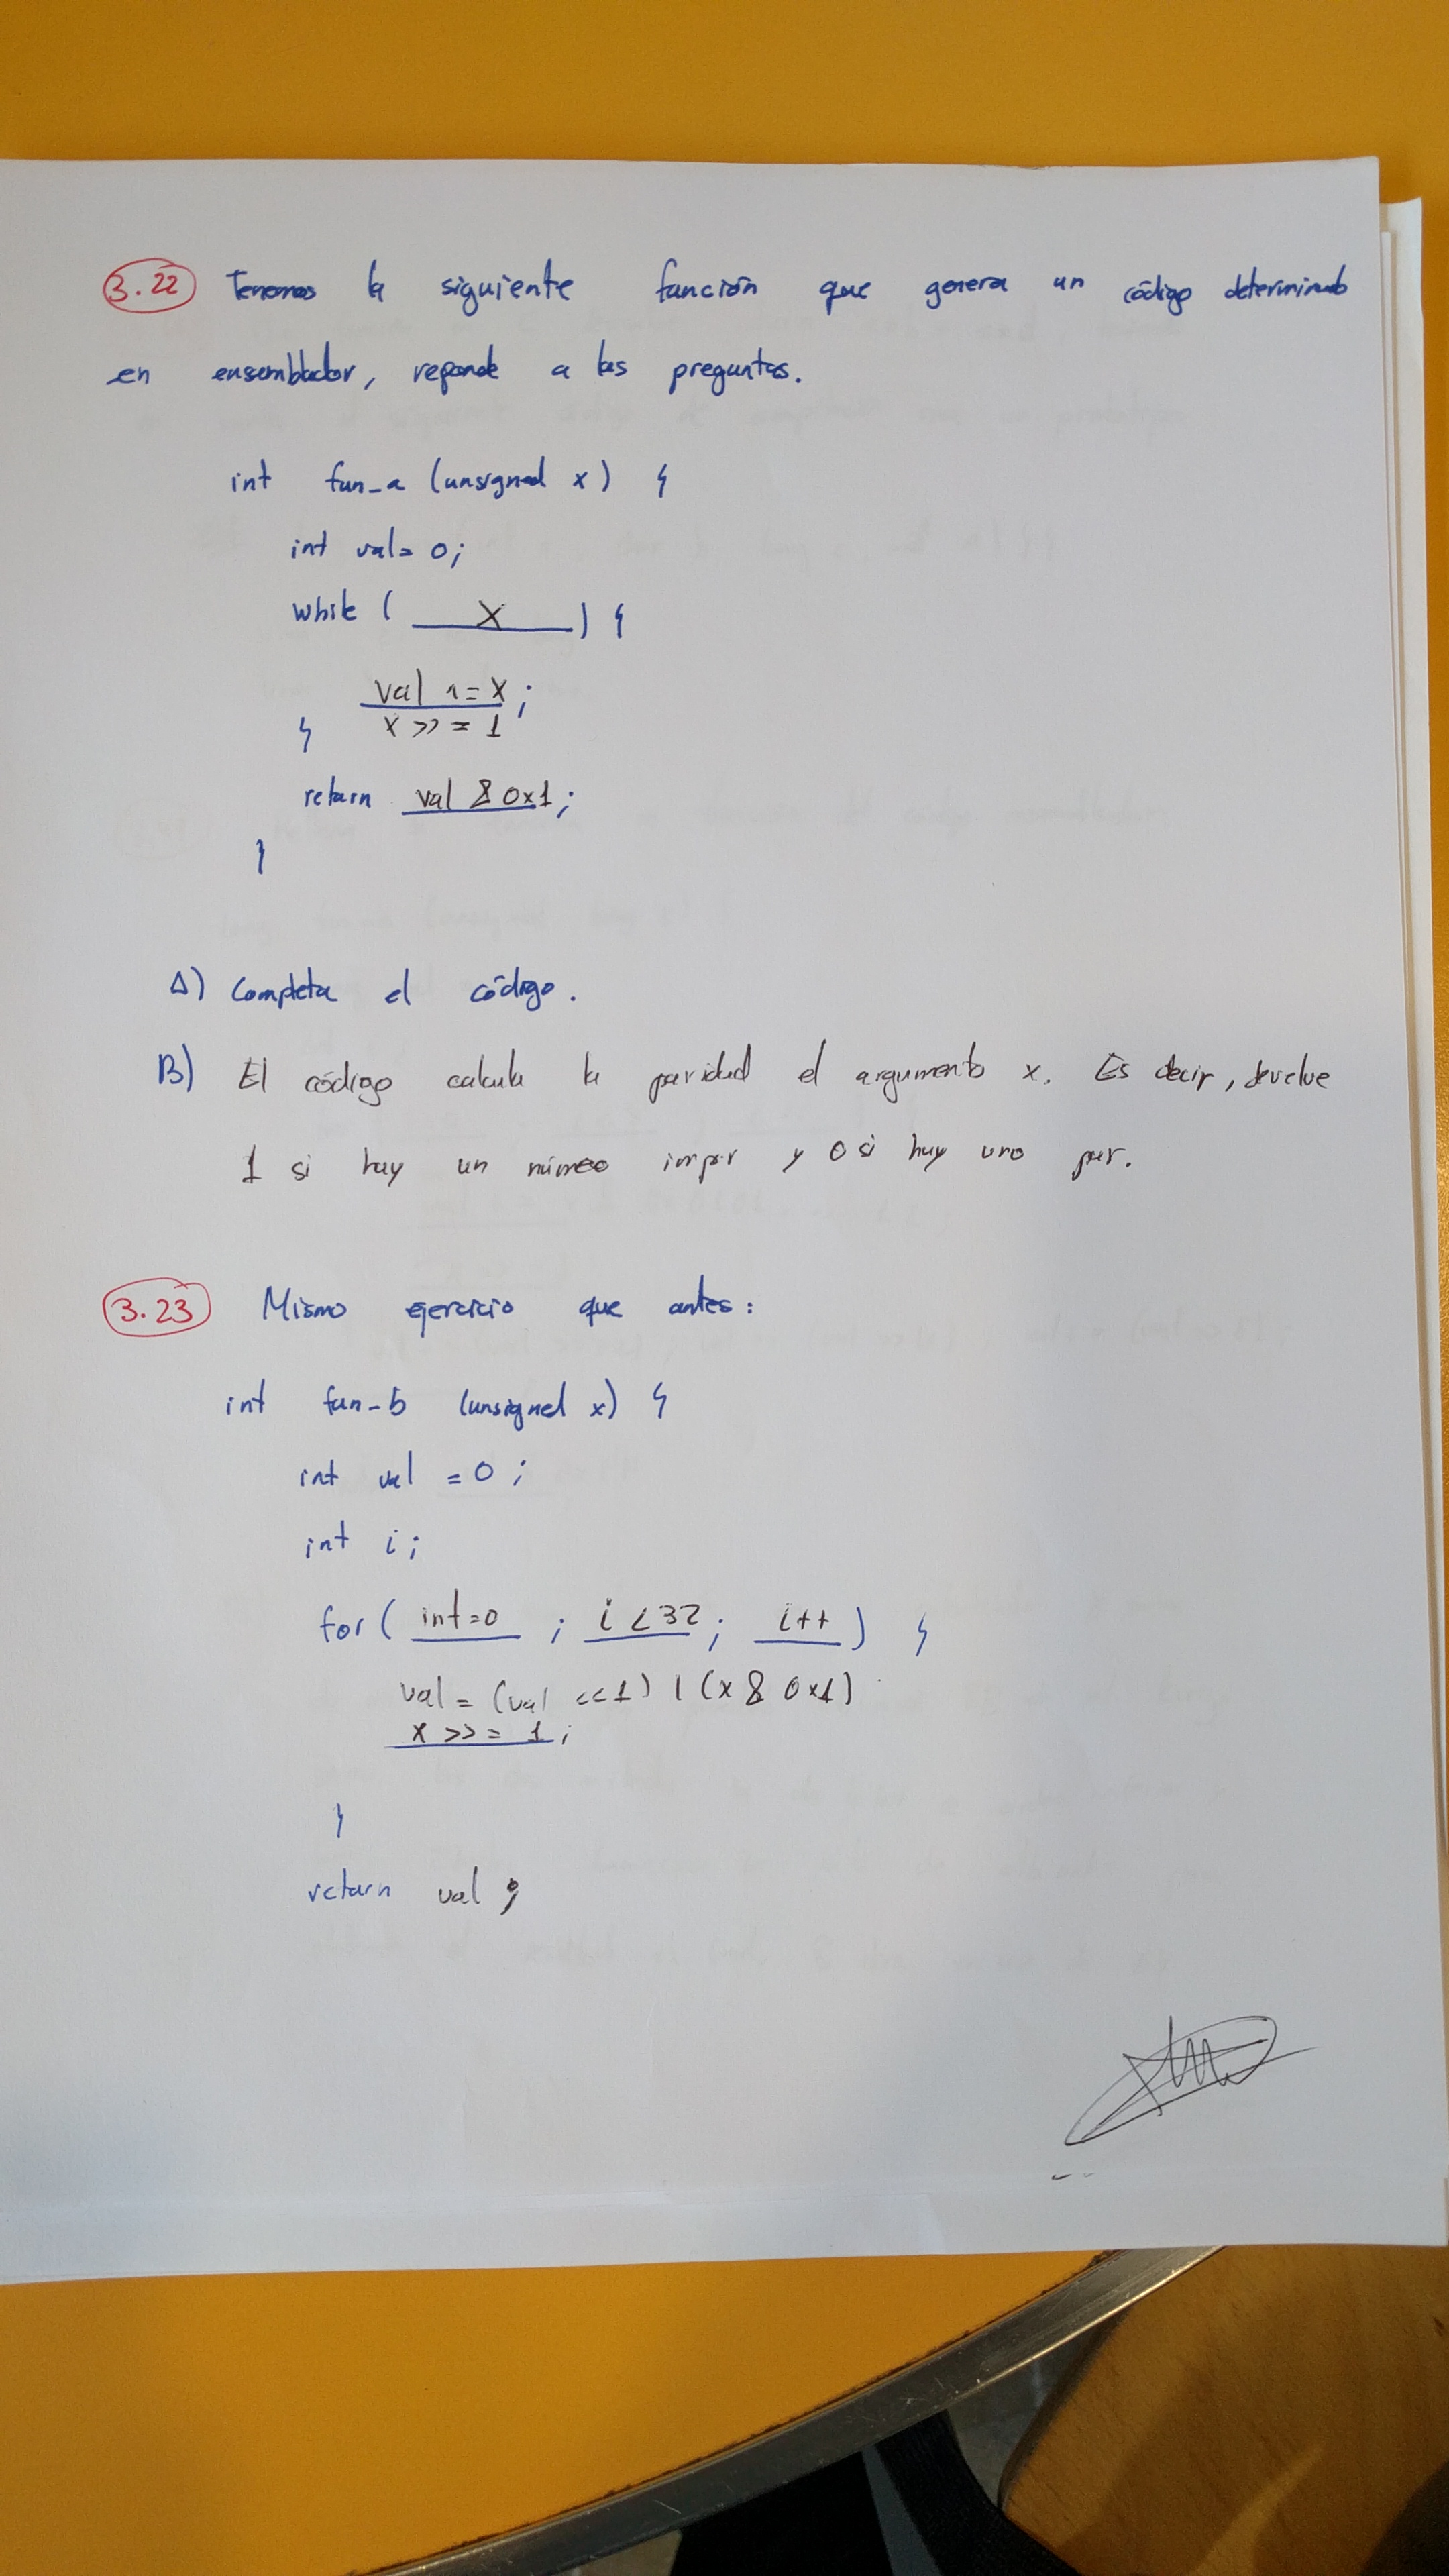 3.22 Tenemos la siguiente función que genera un código determinado
en ensamblador, reponde a las preguntas.
int fun_a (unsigned x) {
int val= 0;
while ( x ) {
val ^= x;
} x >>= 1
return val & 0x1;
}
A) Completa el código.
B) El código calcula la paridad el argumento x. Es decir, devuelve
1 si hay un número impar y 0 si hay uno par.
3.23 Mismo ejercicio que antes:
int fun-b (unsigned x) {
int val = 0;
int i;
for ( int=0 ; i<32; i++) {
val = (val <<1) | (x & 0x1)
x >>= 1;
}
return val;